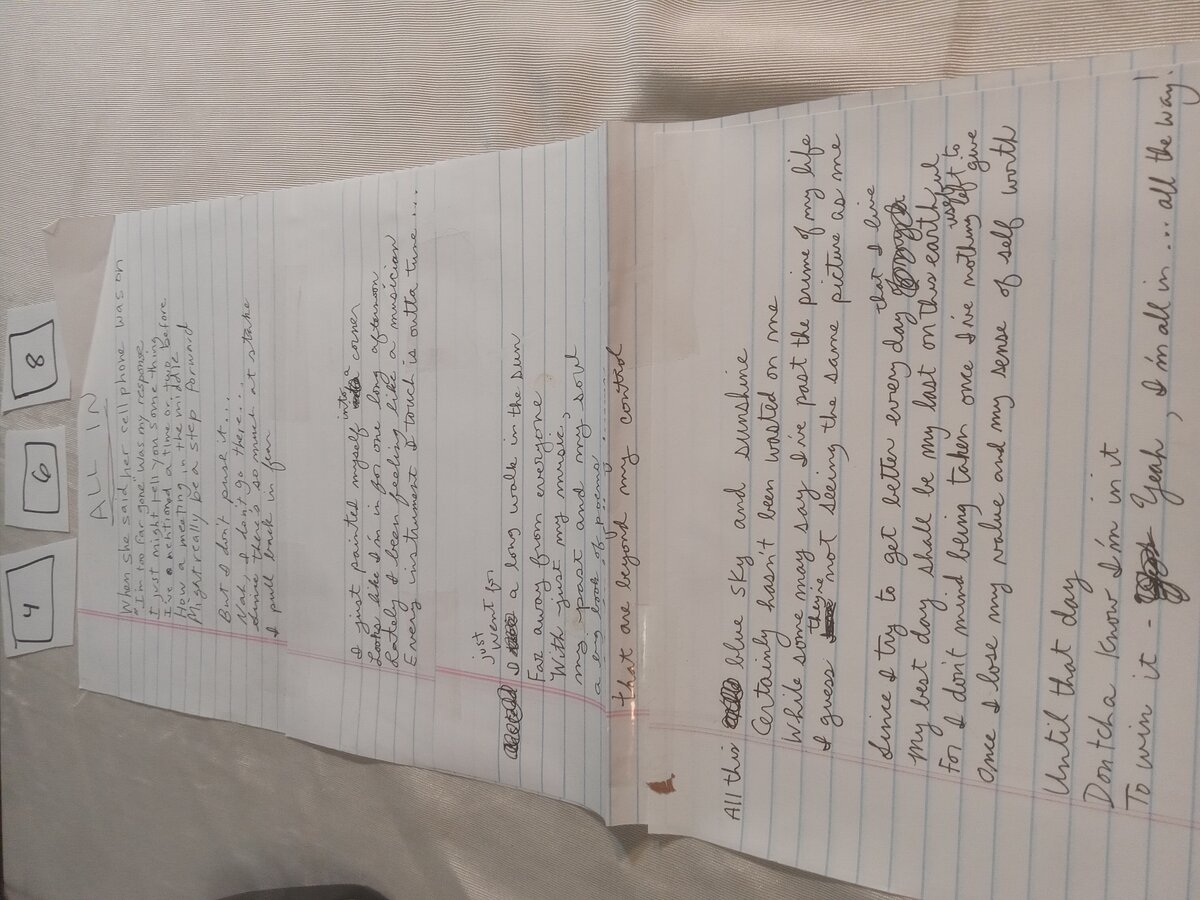 4
6
8
ALL IN
When she said her cell phone was on
"I'm too far gone" was my response
I just might tell you something
I've mentioned a time or two before
How a meeting in the middle
Might really be a step forward
But I don't push it...
Nah, I don't go there...
Since there's so much at stake
I pull back in fear
I just painted myself into a corner
Looks like I'm in for one long afternoon
Lately I been feeling like a musician
Every instrument I touch is outta tune...
I just went for a long walk in the sun
Far away from everyone
With just my music,
my past and my soul
a book of poems
that are beyond my control
All this blue sky and sunshine
Certainly hasn't been wasted on me
While some may say I've past the prime of my life
I guess they're not seeing the same picture as me
Since I try to get better every day that I live
My best day shall be my last on this earth
For I don't mind being taken once I've nothing useful left to give
Once I lose my value and my sense of self worth
Until that day
Dontcha know I'm in it
To win it - Yeah, I'm all in... all the way!